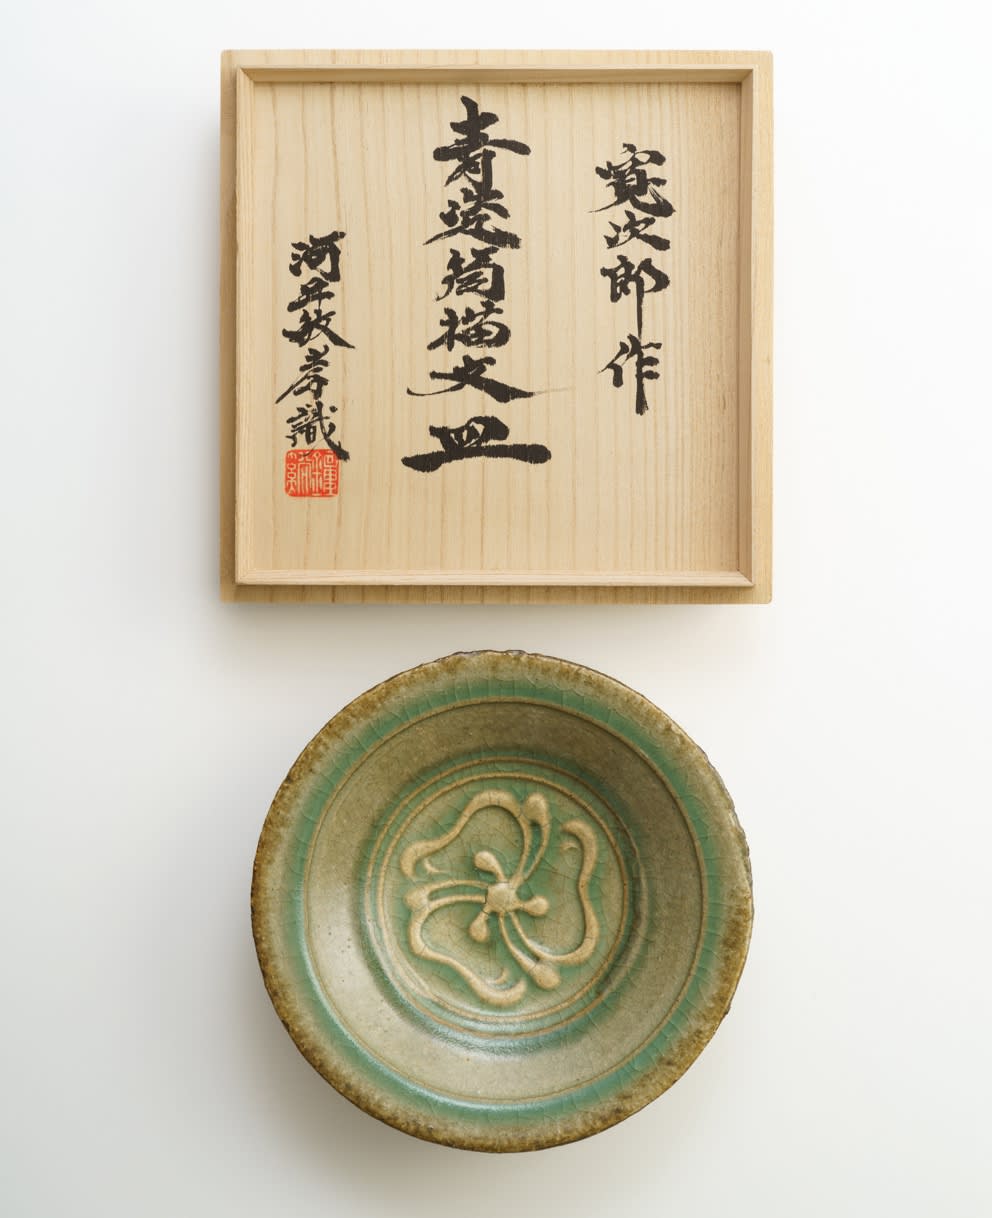 寛次郎作
青瓷筒描文皿
河井敏孝識